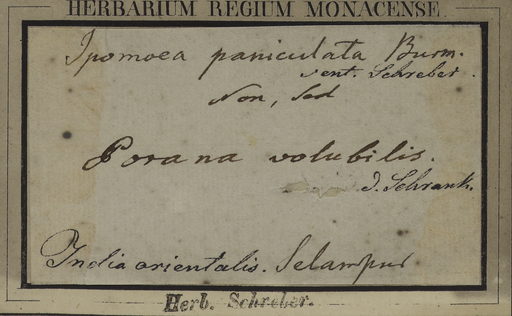 HERBARIUM REGIUM MONACENSE.
Ipomoea paniculata Burm.
sent. Schreber.
Non, sed
Porana volubilis.
J. Schrank.
India orientalis. Selampur
Herb. Schreber.